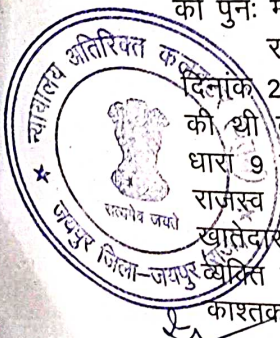 को पुनः
दिनांक 2
की थी
धारा 9
राजस्व
खातेदार
व्यक्ति
काश्तक
न्यायालय अतिरिक्त
सत्यमेव जयते
जयपुर जिला-जयपुर